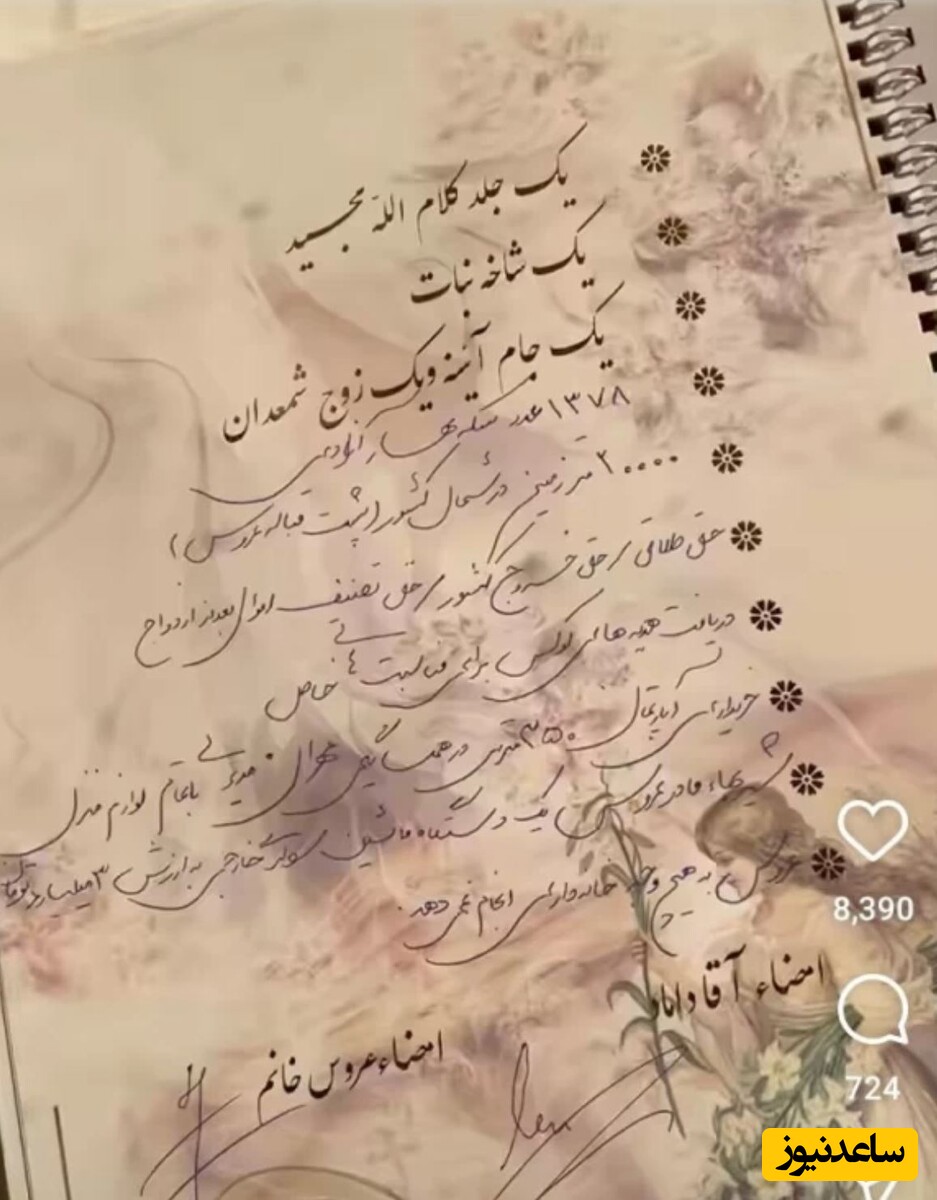 یک جلد کلام الله مجید
یک شاخه نبات
یک جام آینه و یک زوج شمعدان
۱۳۷۸ عدد سکه بهار آزادی
۲۰۰۰۰ متر زمین در شمال کشور (پشت قباله عروس)
حق طلاق / حق خروج کشور / حق تصنیف اموال بعد از ازدواج
دریافت هدیه های لوکس برای مناسبت های خاص
خریداری آپارتمان ۳۵۰ متری در همسایگی مدیری با تمام لوازم منزل
شیربهاء مادر عروس یک دستگاه ماشین سواری خارجی به ارزش ۳ میلیارد تومان
عروس به هیچ وجه خانه داری انجام نمی دهد.
امضاء آقا داماد
امضاء عروس خانم
8,390
724
ساعدنیوز